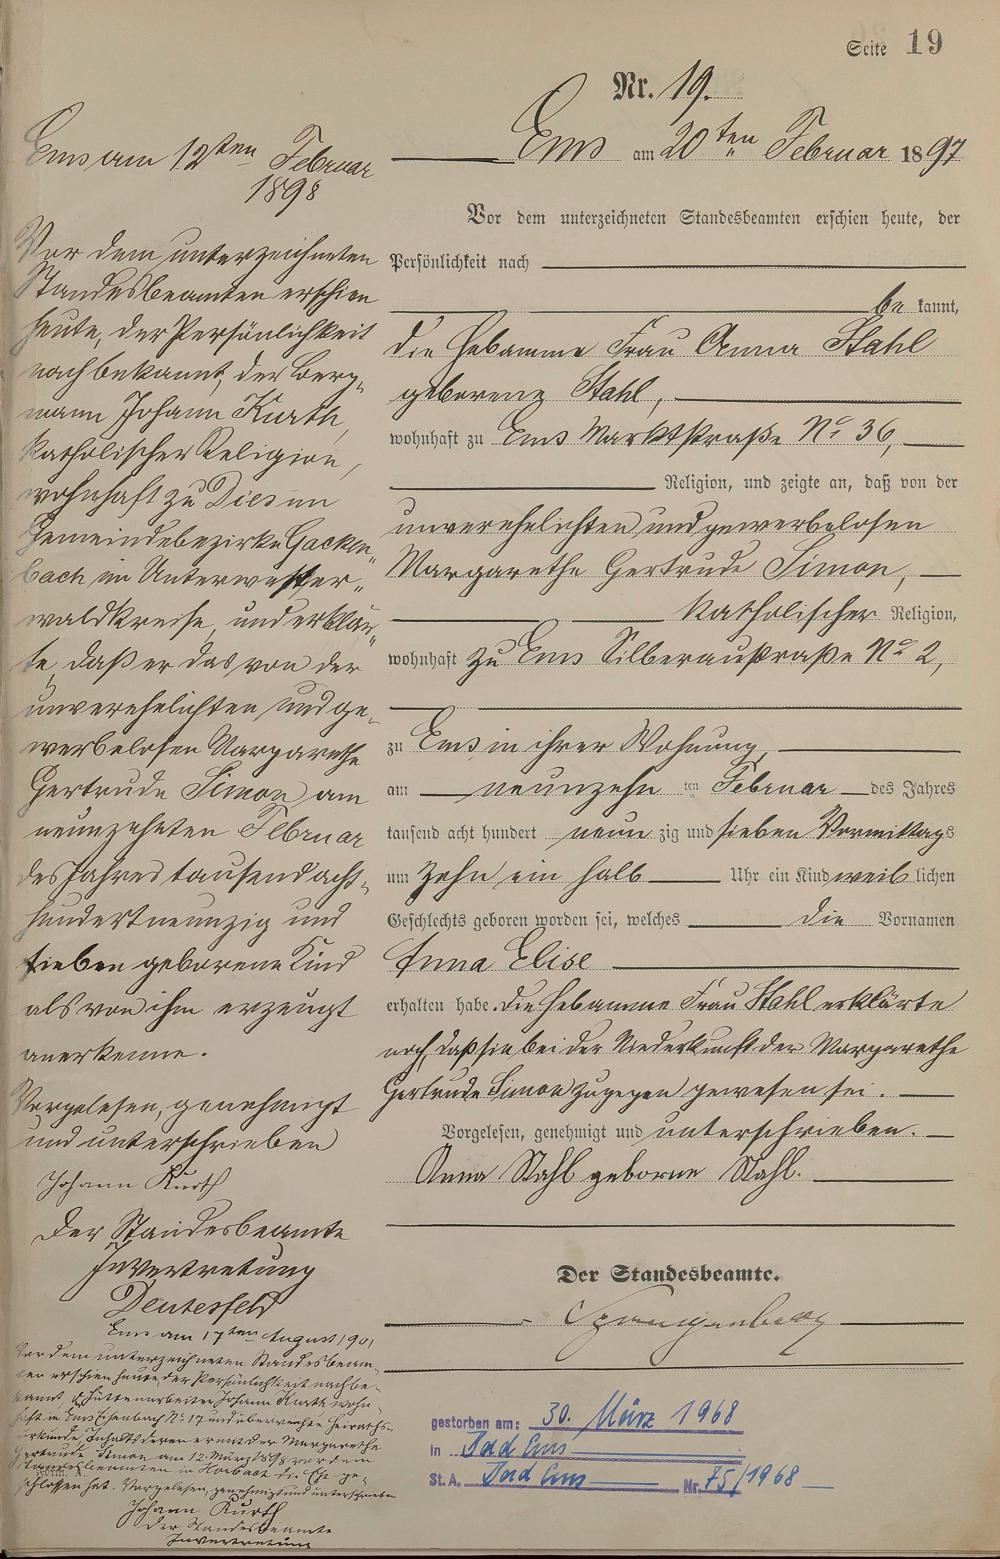 Seite 19
Nr. 19.
Ems am 20ten Februar 1897
Vor dem unterzeichneten Standesbeamten erschien heute, der
Persönlichkeit nach
be kannt,
die Hebamme Frau Anna Stahl
geborene Stahl,
wohnhaft zu Ems Marktstraße No 36,
Religion, und zeigte an, daß von der
unverehelichten und gewerbelosen
Margarethe Gertrude Simon,
katholischer Religion,
wohnhaft zu Ems Silberaustraße No 2,
zu Ems in ihrer Wohnung,
am neunzehn ten Februar des Jahres
tausend acht hundert neun zig und sieben Vormittags
um zehn ein halb Uhr ein Kind weib lichen
Geschlechts geboren worden sei, welches die Vornamen
Anna Elise
erhalten habe. Die Hebamme Frau Stahl erklärte
noch, daß sie bei der Niederkunft der Margarethe
Gertrude Simon zugegen gewesen sei.
Vorgelesen, genehmigt und unterschrieben.
Anna Stahl geborne Stahl.
Der Standesbeamte.
Spangenberg
Ems am 12ten Februar
1898
Vor dem unterzeichneten
Standesbeamten erschien
heute, der Persönlichkeit
nach bekannt, der Berg-
mann Johann Kurth,
katholischer Religion,
wohnhaft zu Dies im
Gemeindebezirke Gacken-
bach im Unterwester-
waldkreise, und erklär-
te, daß er das von der
unverehelichten und ge-
werbelosen Margarethe
Gertrude Simon am
neunzehnten Februar
des Jahres tausend acht-
hundert neunzig und
sieben geborene Kind
als von ihm erzeugt
anerkenne.
Vorgelesen, genehmigt
und unterschrieben
Johann Kurth
Der Standesbeamte
In Vertretung
Deutesfeld
Ems am 17ten August 1901
Vor dem unterzeichneten Standesbeam-
ten erschien heute, der Persönlichkeit nach be-
kannt, der Hüttenarbeiter Johann Kurth wohn-
haft in Ems Eisenbach No 17 und überreichte Heiraths-
urkunde Inhalts deren er mit der Margarethe
Gertrude Simon am 12. März 1898 vor dem
Standesbeamten in Horbach die Ehe ge-
schlossen hat. Vorgelesen, genehmigt und unterschrieben
Johann Kurth
Der Standesbeamte
In Vertretung
gestorben am: 30. März 1968
in Bad Ems
St. A. Bad Ems Nr. 75/1968